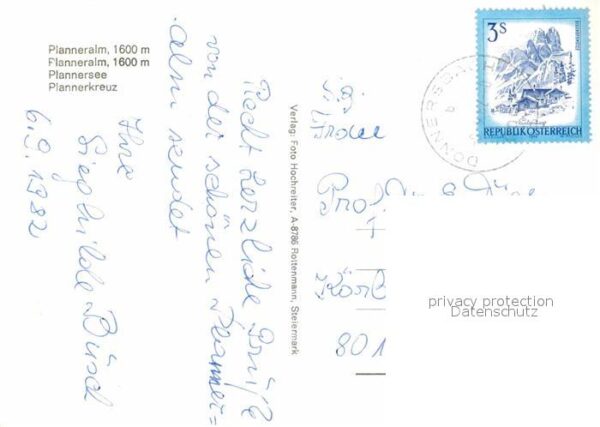 Planneralm, 1600 m
Planneralm, 1600 m
Plannersee
Plannerkreuz
Recht herzliche Grüße
von der schönen Planner=
alm sendet
Ihre
Sieghilde
6.9.1982
Verlag: Foto Hochreiter, A-8786 Rottenmann, Steiermark
Frau
Prof.
Körl
801
3S
REPUBLIK ÖSTERREICH
DONNERSBACH
privacy protection
Datenschutz